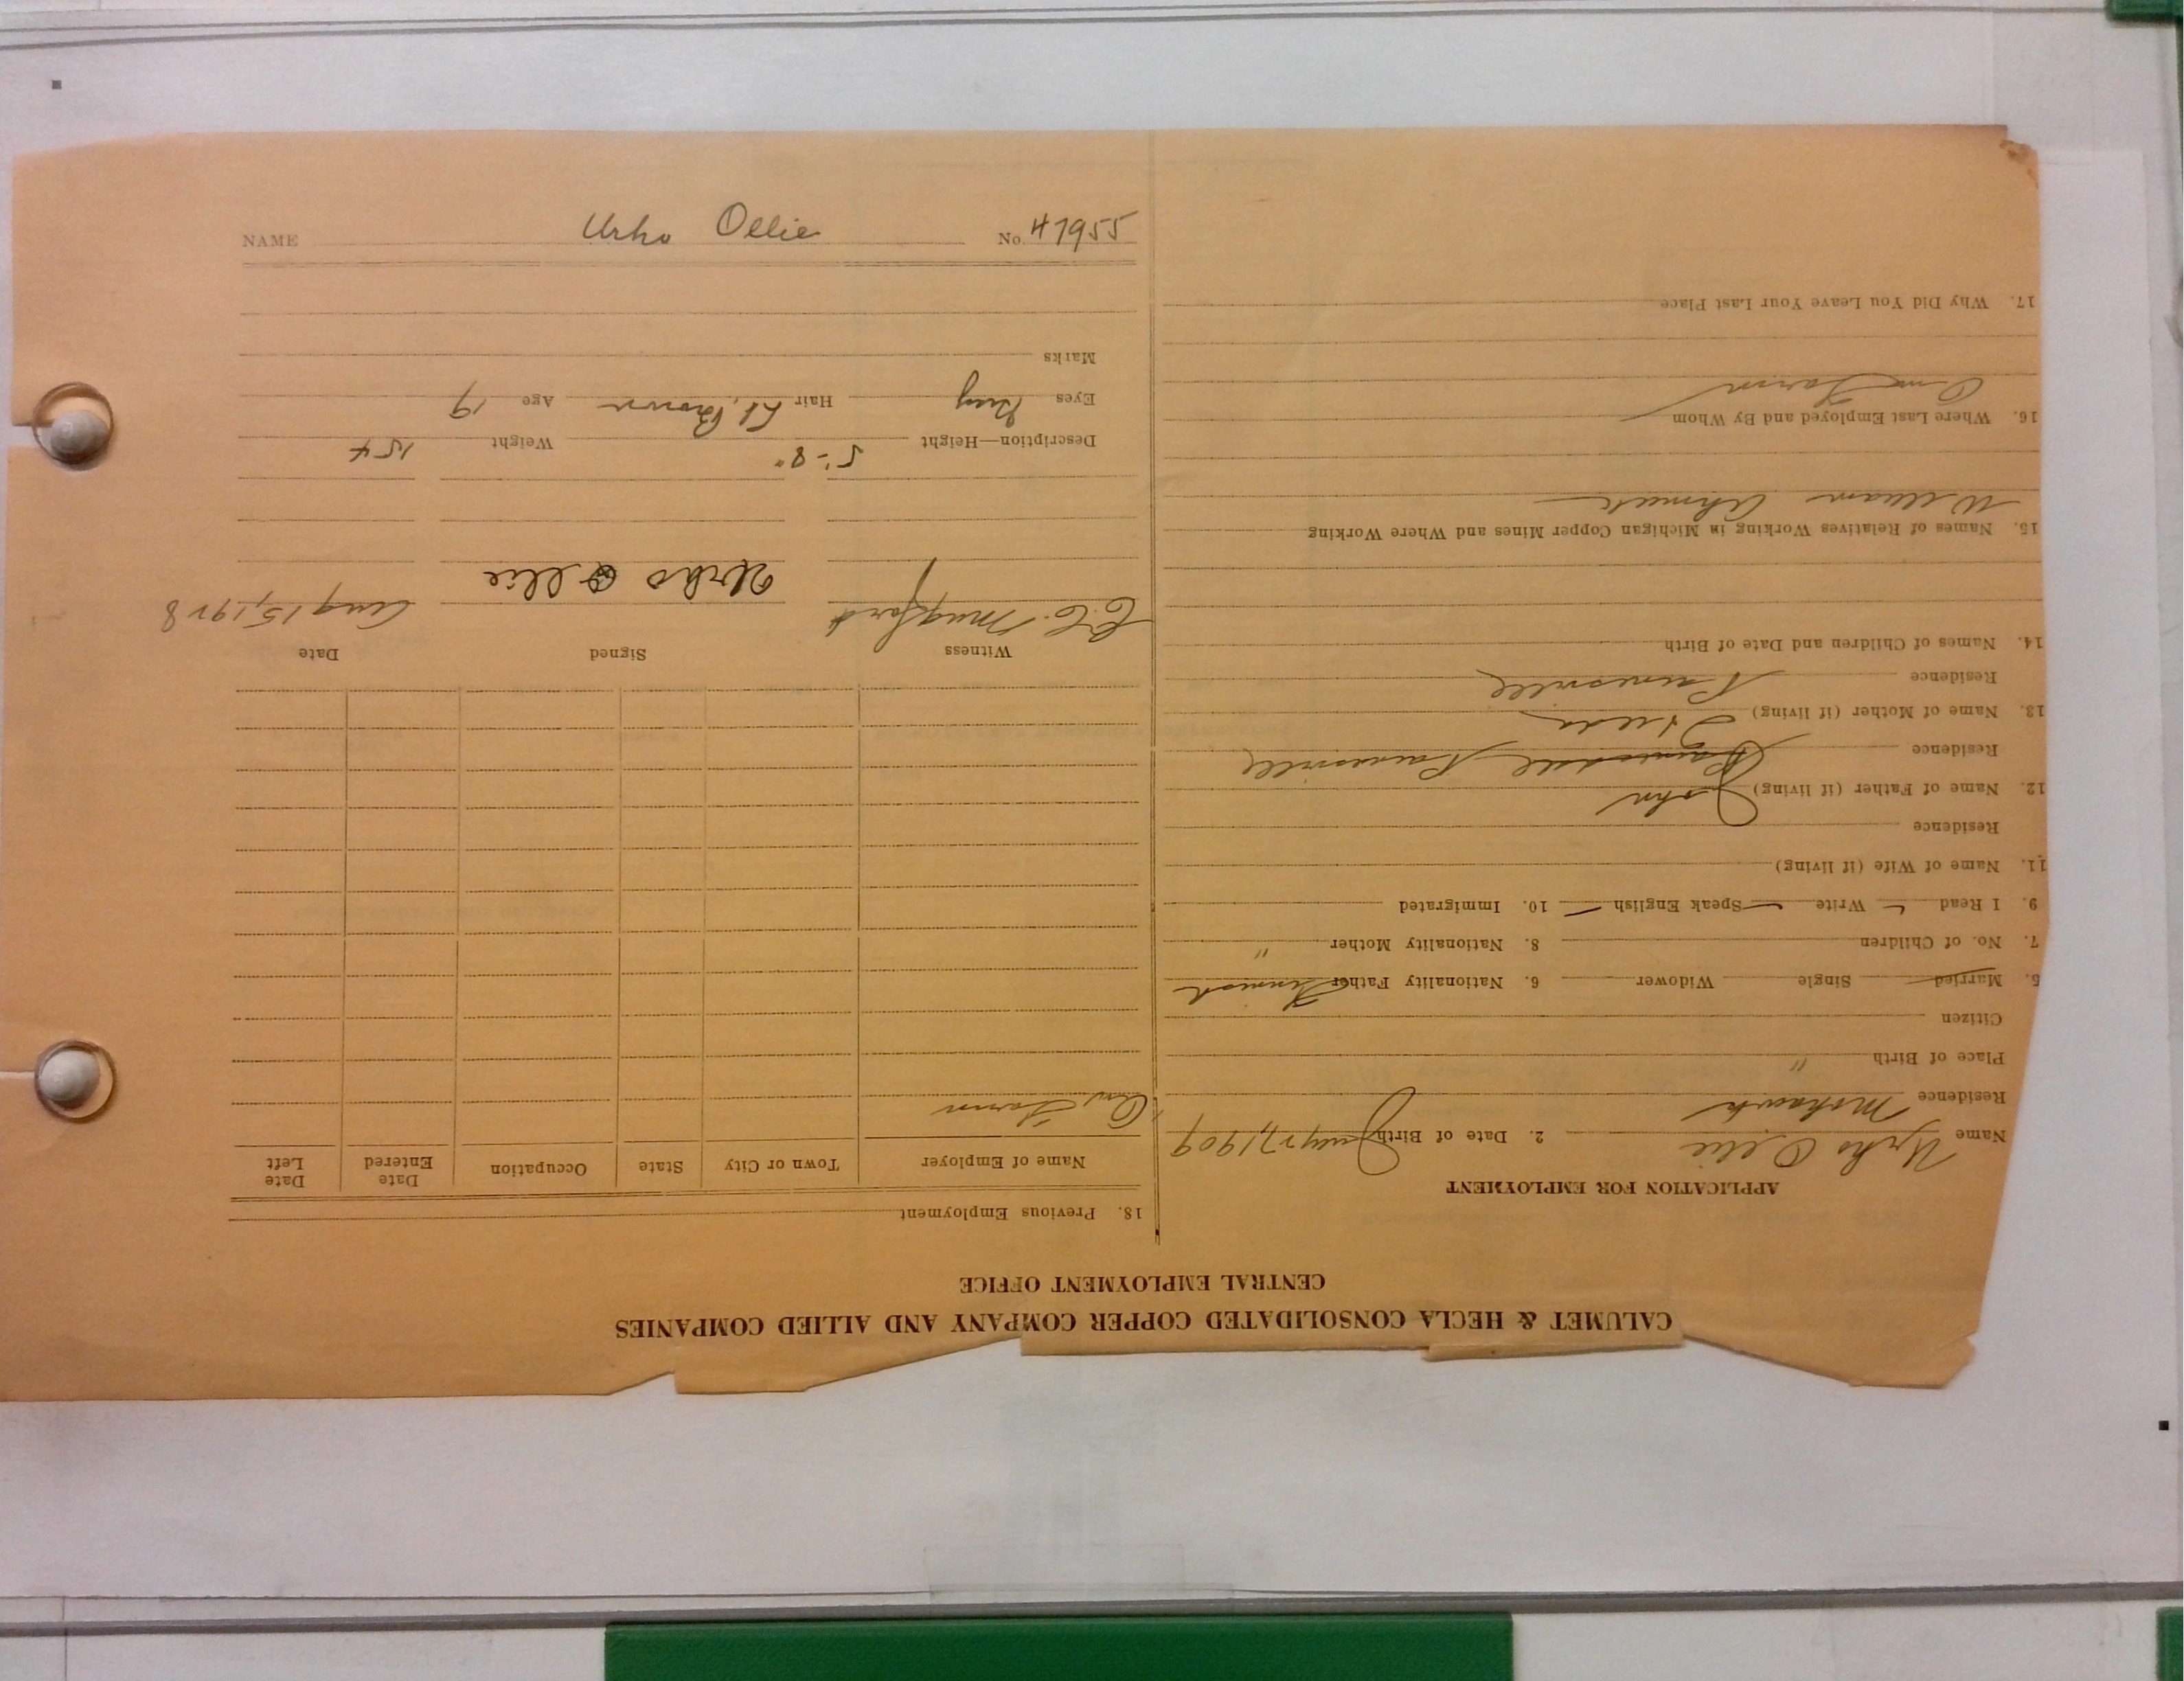 CALUMET & HECLA CONSOLIDATED COPPER COMPANY AND ALLIED COMPANIES
CENTRAL EMPLOYMENT OFFICE
APPLICATION FOR EMPLOYMENT
Name Urho Ollie 2. Date of Birth 27, 1909
Residence Mohawk
Place of Birth "
Citizen
5. Married Single Widower 6. Nationality Father Finnish
7. No. of Children 8. Nationality Mother "
9. I Read Write Speak English 10. Immigrated
11. Name of Wife (if living)
Residence
12. Name of Father (if living) John
Residence Painesville
13. Name of Mother (if living) Hilda
Residence Painesville
14. Names of Children and Date of Birth
15. Names of Relatives Working in Michigan Copper Mines and Where Working
William
16. Where Last Employed and By Whom
Own Farm
17. Why Did You Leave Your Last Place
18. Previous Employment
Name of Employer Town or City State Occupation Date Entered Date Left
Own Farm
Witness Signed Date
C.C. Mugford Urho Ollie Aug 15, 1928
Description—Height 5'-8" Weight 154
Eyes Grey Hair Lt. Brown Age 19
Marks
NAME Urho Ollie No. 47955